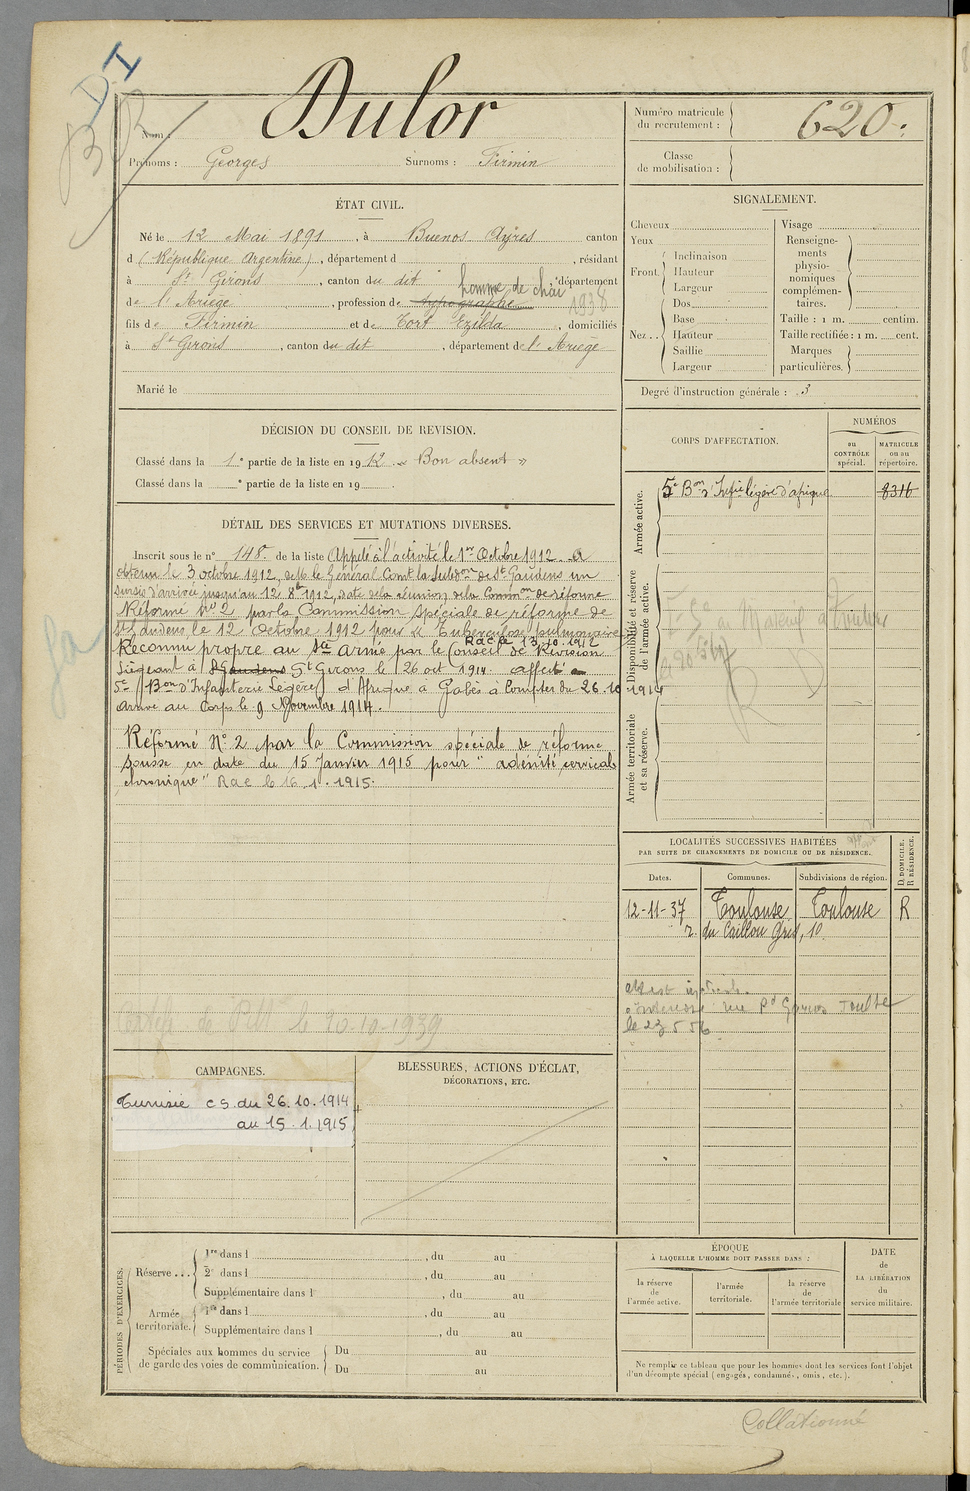 D.I
Nom : Dulor
Prénoms : Georges Surnoms : Firmin
Numéro matricule
du recrutement : 620
Classe
de mobilisation :
ÉTAT CIVIL.
Né le 12 Mai 1891, à Buenos Ayres canton
d (République Argentine), département d , résidant
à St Girons, canton du dit, département
homme de chai
1938
de l'Ariège, profession de typographe
fils de Firmin et de Tort Ezilda, domiciliés
à St Girons, canton du dit, département de l'Ariège
Marié le
SIGNALEMENT.
Cheveux
Yeux
Front. Inclinaison
Hauteur
Largeur
Nez .. Dos
Base
Hauteur
Saillie
Largeur
Visage
Renseigne-
ments
physio-
nomiques
complémen-
taires.
Taille : 1 m. centim.
Taille rectifiée : 1 m. cent.
Marques
particulières.
Degré d'instruction générale : 3
DÉCISION DU CONSEIL DE REVISION.
Classé dans la 1e partie de la liste en 1912 « Bon absent »
Classé dans la e partie de la liste en 19 .
DÉTAIL DES SERVICES ET MUTATIONS DIVERSES.
Inscrit sous le n° 148 de la liste Appelé à l'activité le 1er Octobre 1912. A
obtenu le 3 octobre 1912, de M. le Général Comt la Subdon de St Gaudens un
sursis d'arrivée jusqu'au 12 8bre 1912, date de la réunion de la Common de réforme
Réformé N° 2 par la Commission spéciale de réforme de
St Gaudens le 12 Octobre 1912 pour « Tuberculose pulmonaire »
Rac a 13.10.1912
Reconnu propre au Sce armé par le Conseil de Révision
Siégeant à St Gaudens St Girons le 26 oct 1914 affecté au
5e Bon d'Infanterie Légère d'Afrique à Gabès à Compter du 26.10.1914
Arrivé au Corps le 9 Novembre 1914.
Réformé N° 2 par la Commission spéciale de réforme
Sousse en date du 15 Janvier 1915 pour "adénité cervicale
chronique" Rac le 16.1.1915.
le 20-10-1939
CORPS D'AFFECTATION.
NUMÉROS
au
CONTRÔLE
spécial.
MATRICULE
ou au
répertoire.
Armée active.
5e Bon d'Infie légère d'afrique 8316
Disponibilité et réserve
de l'armée active.
Armée territoriale
et sa réserve.
LOCALITÉS SUCCESSIVES HABITÉES
PAR SUITE DE CHANGEMENTS DE DOMICILE OU DE RÉSIDENCE.
Dates. Communes. Subdivisions de région. D. DOMICILE. R. RÉSIDENCE.
12-11-37 Toulouse Toulouse R
r. du Caillou Gris, 10
le 23 5 56
CAMPAGNES.
Tunisie C S. du 26.10.1914
au 15.1.1915
BLESSURES, ACTIONS D'ÉCLAT,
DÉCORATIONS, ETC.
PÉRIODES D'EXERCICES.
Réserve ... 1re dans l , du au
2e dans l , du au
Supplémentaire dans l , du au
Armée
territoriale. 1re dans l , du au
Supplémentaire dans l , du au
Spéciales aux hommes du service
de garde des voies de communication. Du au
Du au
ÉPOQUE
À LAQUELLE L'HOMME DOIT PASSER DANS :
la réserve
de
l'armée active.
l'armée
territoriale.
la réserve
de
l'armée territoriale
DATE
de
LA LIBÉRATION
du
service militaire.
Ne remplir ce tableau que pour les hommes dont les services font l'objet
d'un décompte spécial (engagés, condamnés, omis, etc.).
Collationné